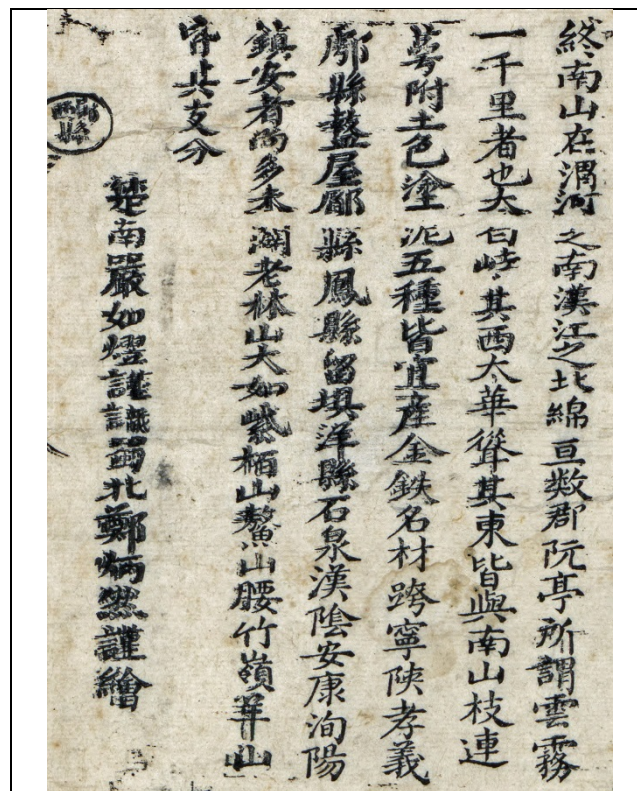 終南山在渭河之南漢江之北綿亘数郡阮亭所謂雲霧
一千里者也太白峙其西太華聳其東皆與南山枝連
萼附土色塗泥五種皆宜産金鉄名材跨寧陝孝義
鄠縣盩厔郿縣鳳縣留垻洋縣石泉漢陰安康洵陽
鎮安者尚多未闢老林山大如紫栢山鰲山腰竹嶺羊山
皆其支分
楚南嚴如熤謹識蜀北鄭炳然謹繪